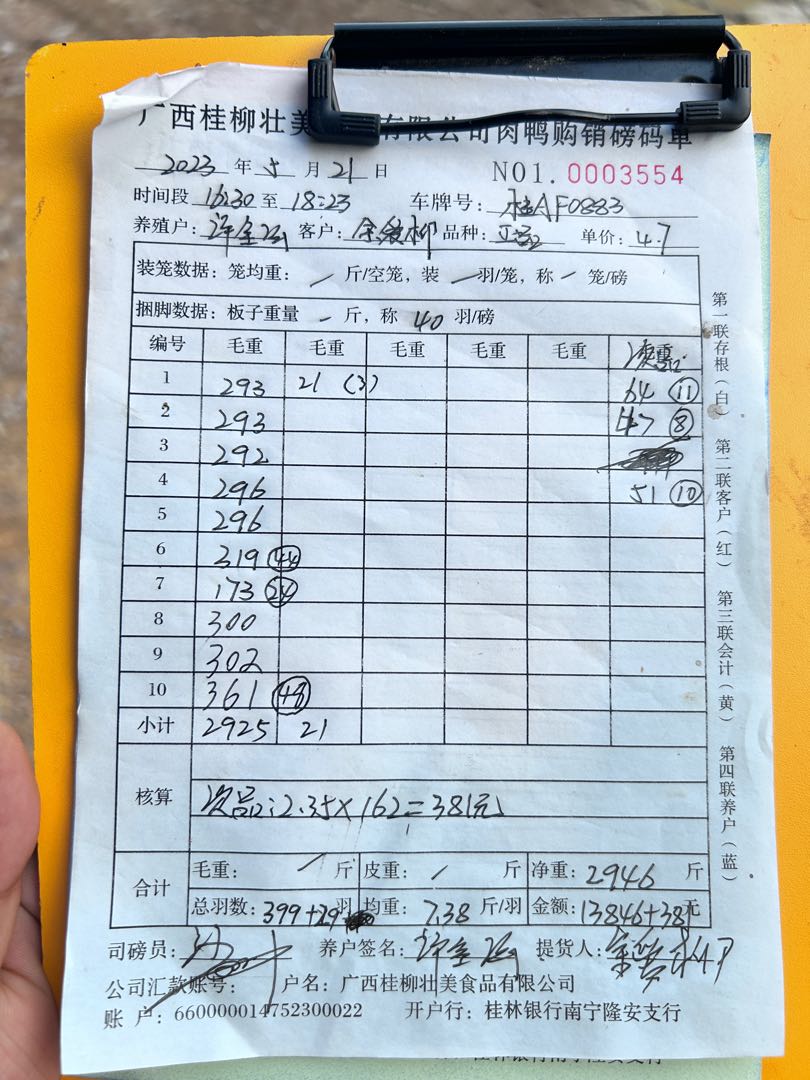 广西桂柳壮美 有限公司肉鸭购销磅码单
2023 年 5 月 21 日 NO1. 0003554
时间段 16:30 至 18:23 车牌号: 桂AF0883
养殖户: 客户: 品种: 单价: 4.7
装笼数据: 笼均重: / 斤/空笼, 装 / 羽/笼, 称 / 笼/磅
捆脚数据: 板子重量 / 斤, 称 40 羽/磅
编号 毛重 毛重 毛重 毛重 毛重
1 293 21 (3) 64 ⑪
2 293 47 ⑧
3 292
4 296 51 ⑩
5 296
6 319 ㊹
7 173 ㉔
8 300
9 302
10 361 ㊽
小计 2925 21
核算 次品: 2.35×162=381元
合计 毛重: / 斤 皮重: / 斤 净重: 2946 斤
总羽数: 399+29 羽 均重: 7.38 斤/羽 金额: 13846+381元
司磅员: 养户签名: 提货人:
公司汇款账号: 户名: 广西桂柳壮美食品有限公司
账 户: 660000014752300022 开户行: 桂林银行南宁隆安支行
第一联存根(白) 第二联客户(红) 第三联会计(黄) 第四联养户(蓝)